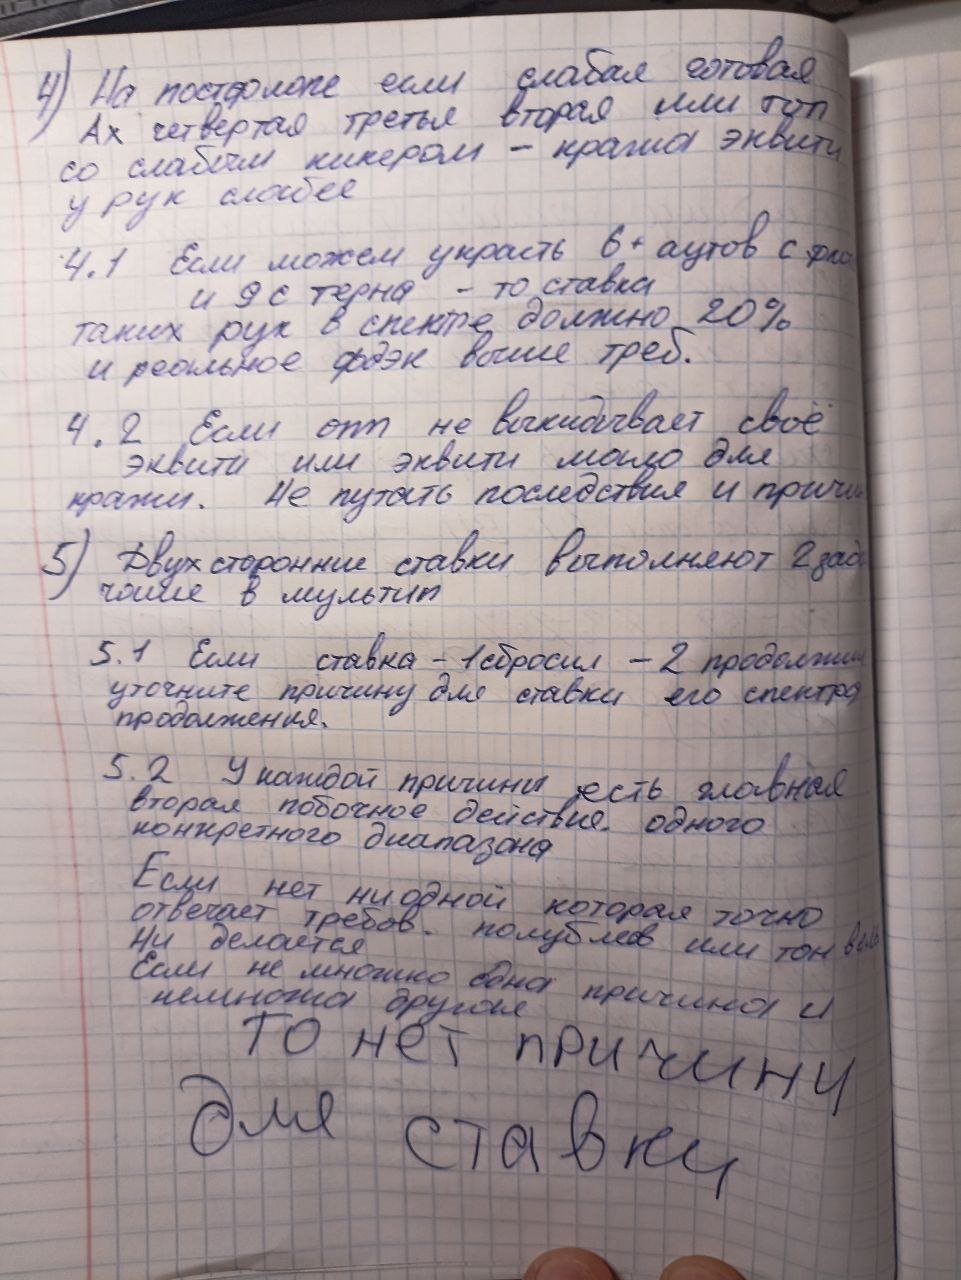 4) На постфлопе если слабая готовая
Ах четвёртая третья вторая или топ
со слабым кикером – кража эквити
у рук слабее
4.1 Если можем украсть 6+ аутов с фло
и 9 с терна – то ставка
таких рук в спектре должно 20%
и реальное фдэк выше треб.
4.2 Если опп не выкидывает своё
эквити или эквити мало для
кражи. Не путать последствия и причи
5) Двухсторонние ставки выполняют 2 зад
чаще в мультип
5.1 Если ставка – 1 сбросил – 2 продолжил
уточните причину для ставки его спектра
продолжения.
5.2 У каждой причины есть главная
вторая побочное действие. одного
конкретного диапазона
Если нет ни одной которая точно
отвечает требов. полублев или тон вель
Ни делается
Если не множко одна причина и
немножка другая
ТО нет причины
для ставки